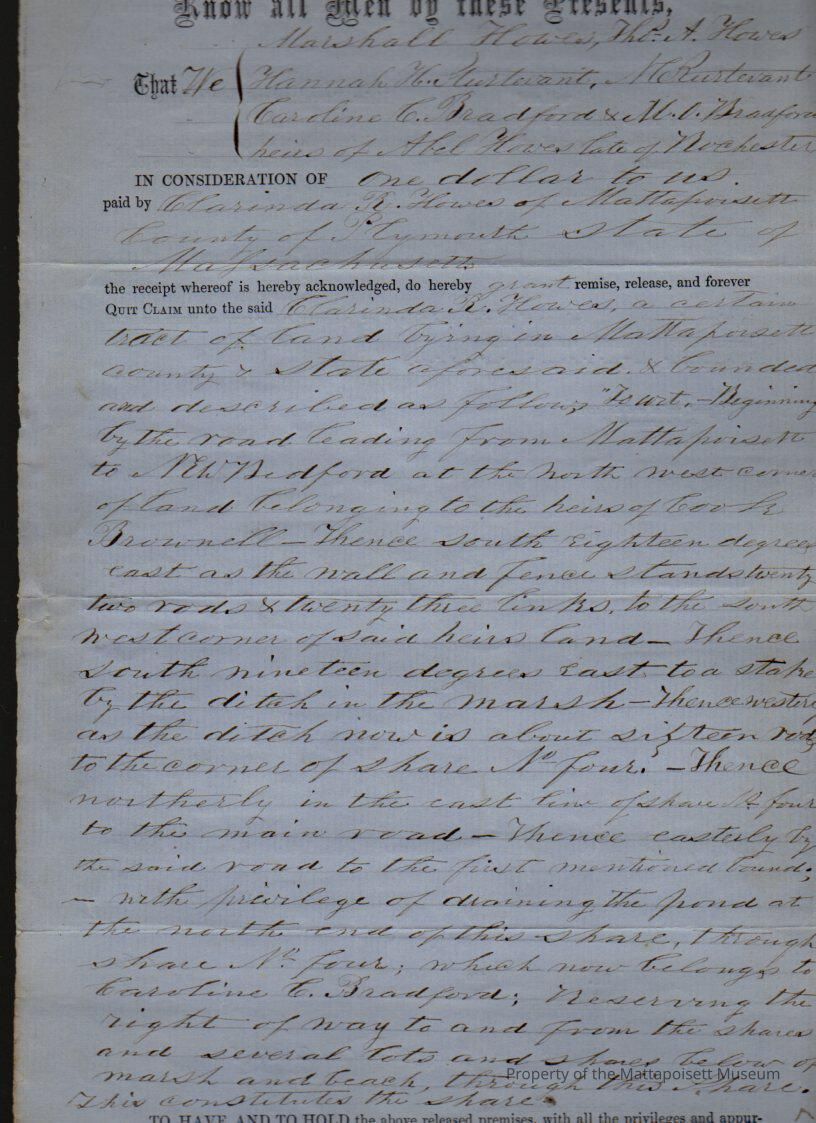 Know all Men by these Presents,
Marshall Howes, Tho. A. Howes
That We Hannah H. Sturtevant,
Caroline C. Bradford & M. O. Bradford
heirs of Abel Howes late of Rochester
IN CONSIDERATION OF one dollar to us
paid by Clarinda R. Howes of Mattapoisett
County of Plymouth State of
Massachusetts
the receipt whereof is hereby acknowledged, do hereby grant remise, release, and forever
QUIT CLAIM unto the said Clarinda R. Howes, a certain
tract of land lying in Mattapoisett
county & State aforesaid. & bounded
and described as follows, Beginning
by the road leading from Mattapoisett
to New Bedford at the north west corner
of land belonging to the heirs of
Brownell – Thence south eighteen degrees
east as the wall and fence stands twenty
two rods & twenty three links, to the south
west corner of said heirs land – Thence
south nineteen degrees East to a stake
by the ditch in the marsh – Thence westerly
as the ditch now is about sixteen rods
to the corner of share No four. – Thence
northerly in the east line of share No four
to the main road – Thence easterly by
the said road to the first mentioned bound;
– with privilege of draining the pond at
the north end of this share, through
share No four; which now belongs to
Caroline C. Bradford; Reserving the
right of way to and from the shares
and several lots and shares below of
marsh and beach, through this share.
This constitutes the share
Property of the Mattapoisett Museum
TO HAVE AND TO HOLD the above released premises, with all the privileges and appur-